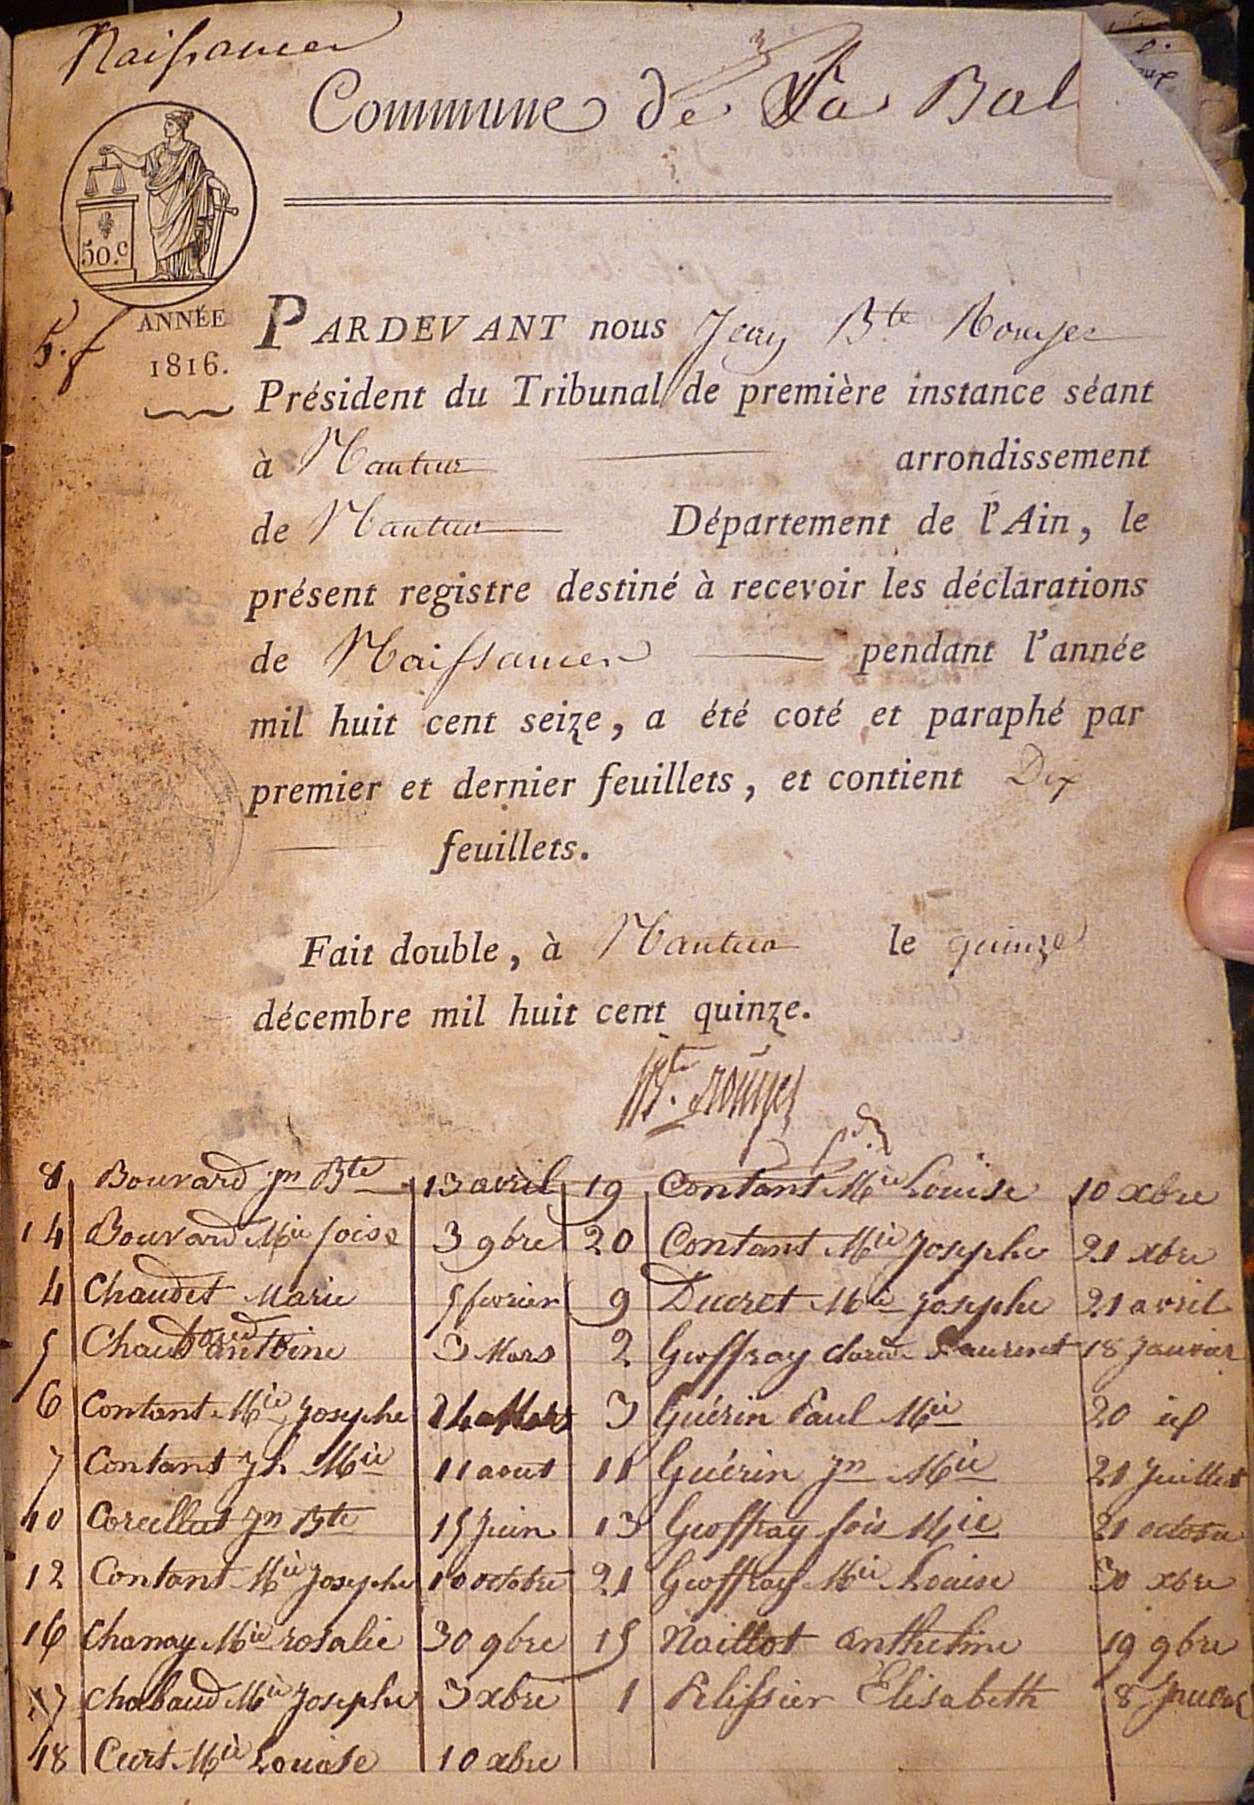 Naissances
Commune de La Bal
50.c
5.f
ANNÉE
1816.
PARDEVANT nous Jean Bte Rouyer
Président du Tribunal de première instance séant
à Nantua arrondissement
de Nantua Département de l'Ain, le
présent registre destiné à recevoir les déclarations
de Naissances pendant l'année
mil huit cent seize, a été coté et paraphé par
premier et dernier feuillets, et contient Dix
feuillets.
Fait double, à Nantua le quinze
décembre mil huit cent quinze.
Bte. rouyer
8 Bouvard jn Bte 13 avril 19 Contant Mie Louise 10 xbre
14 Bouvard Mie foise 3 9bre 20 Contant Mie Josephe 21 xbre
4 Chaudet Marie 5 fevrier 9 Ducret Mie josephe 21 avril
5 antoine 3 Mars 2 Geoffray Laurent 18 Janvier
6 Contant Mie Josephe 3 Guérin Paul Mie 20 id
7 Contant Jh Mie 11 aout 11 Guérin Jn Mie 21 Juillet
10 jn Bte 15 Juin 13 Geoffray fois Mie 21 octobre
12 Contant Mie Josephe 10 octobre 21 Geoffray Mie Louise 30 xbre
16 Chanay Mie rosalie 30 9bre 15 Naillot anthelme 19 9bre
17 Chabaud Mie Josephe 3 xbre 1 Pelissier Elisabeth 8
18 Curt Mie Louise 10 xbre